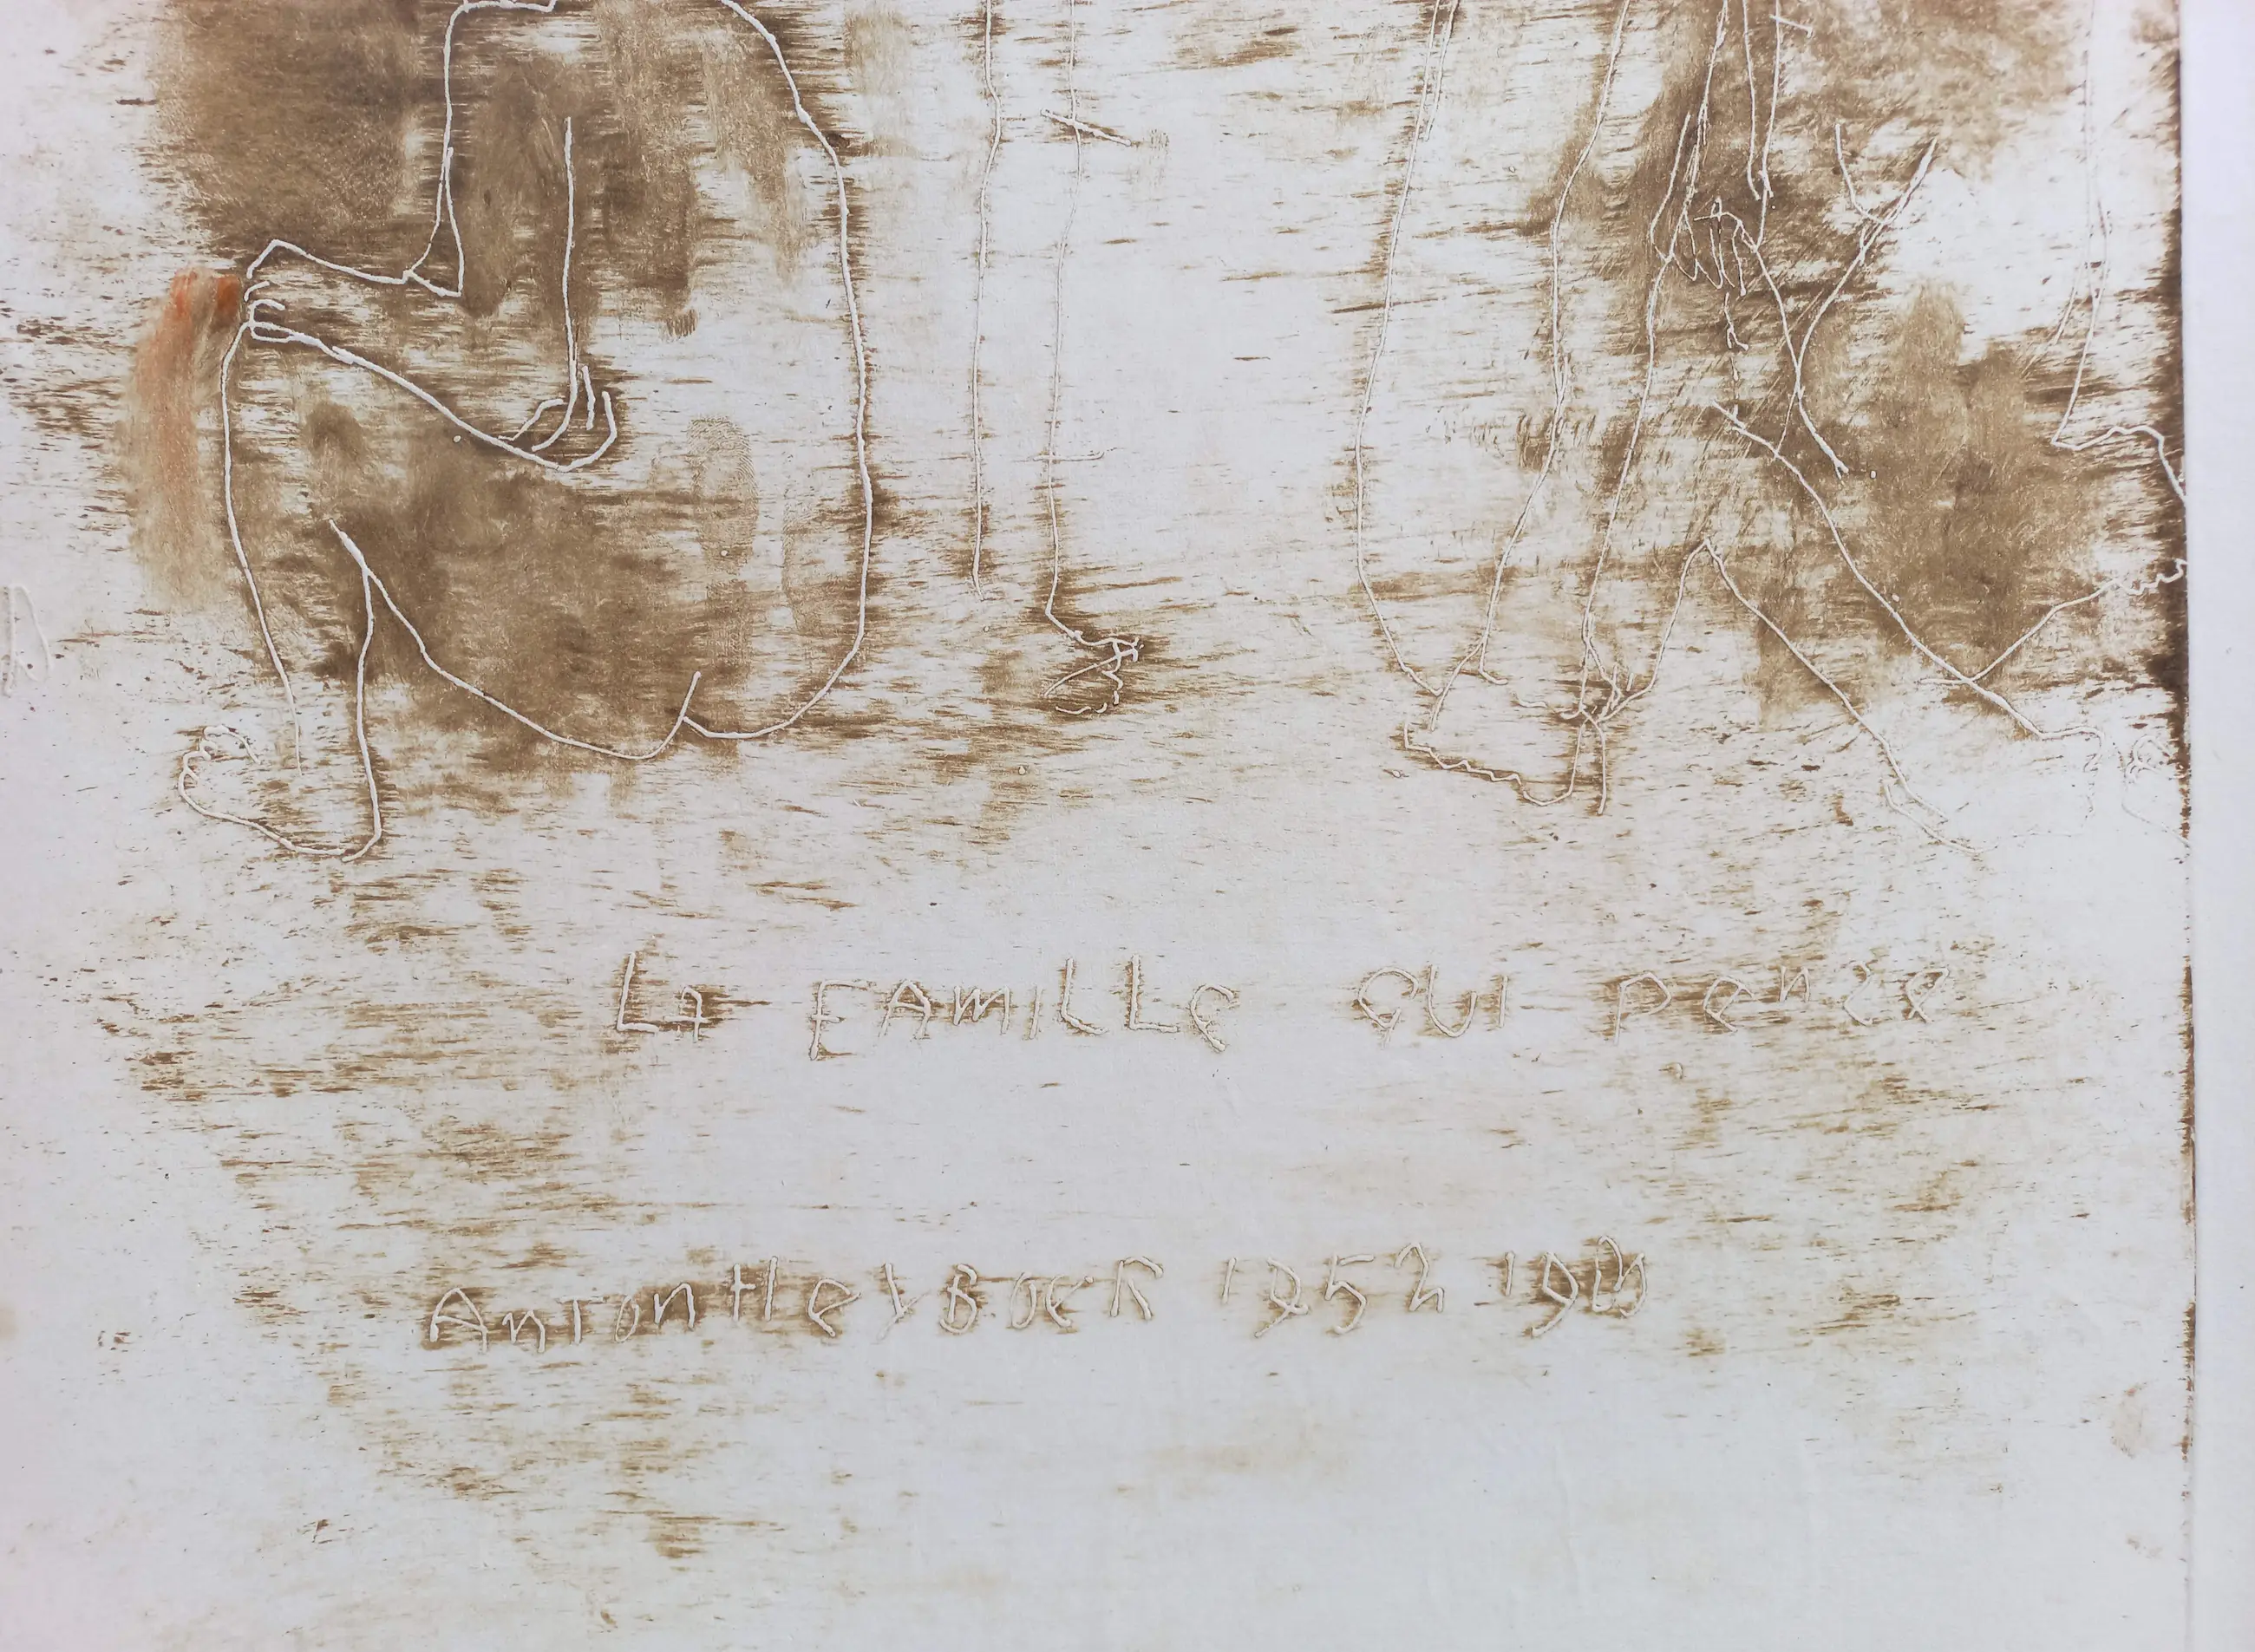 La FAMiLLe QUi pense
Anton HeyBoer 1952